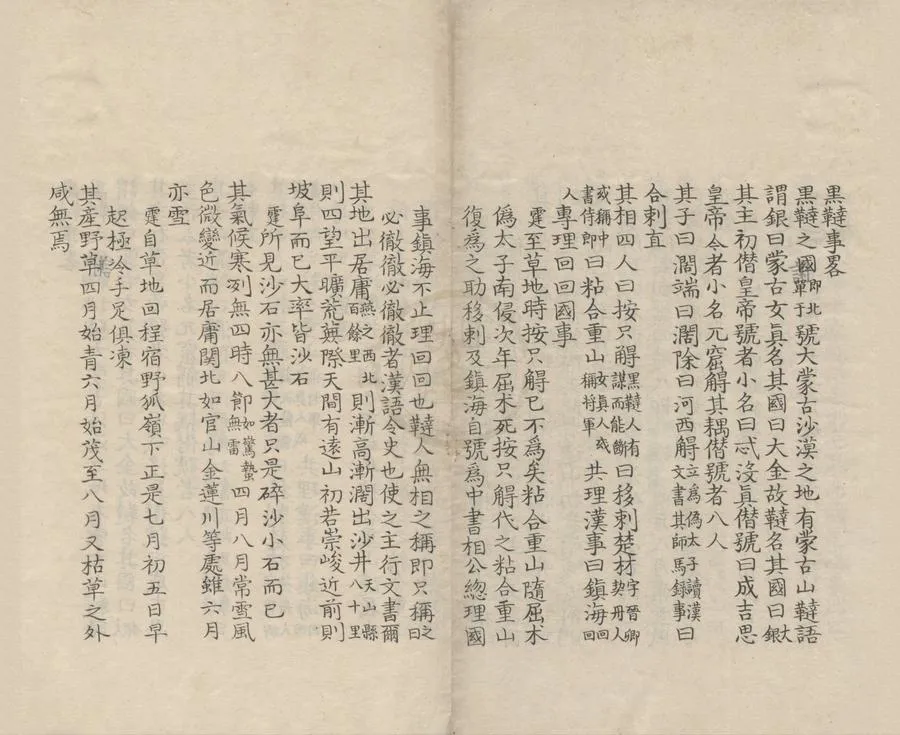 黑韃事畧
黑韃之國即北單于號大蒙古沙漠之地有蒙古山韃語
謂銀曰蒙古女眞名其國曰大金故韃名其國曰大銀
其主初僭皇帝號者小名曰忒沒眞僭號曰成吉思
皇帝今者小名兀窟䚟其耦僭號者八人
其子曰濶端曰濶除曰河西䚟立爲偽太子讀漢文書其師馬錄事曰
合剌直
其相四人曰按只䚟黑韃人有謀而能斷曰移剌楚材字晉卿契丹人
或稱中書侍郎曰粘合重山女眞人或稱將軍共理漢事曰鎮海回回
人專理回回國事
霆至草地時按只䚟已不爲矣粘合重山隨屈术
僞太子南侵次年屈术死按只䚟代之粘合重山
復爲之助移剌及鎮海自號爲中書相公緫理國
事鎮海不止理回回也韃人無相之稱即只稱之曰
必徹徹必徹徹者漢語令史也使之主行文書爾
其地出居庸燕之西北百餘里則漸高漸濶出沙井天山縣八十里
則四望平曠荒蕪際天間有逺山初若崇峻近前則
坡阜而已大率皆沙石
霆所見沙石亦無甚大者只是碎沙小石而已
其氣候寒冽無四時八節如驚蟄無雷四月八月常雪風
色微變近而居庸関北如官山金蓮川等處雖六月
亦雪
霆自草地回程宿野狐嶺下正是七月初五日早
起極冷手足俱凍
其産野草四月始青六月始茂至八月又枯草之外
咸無焉